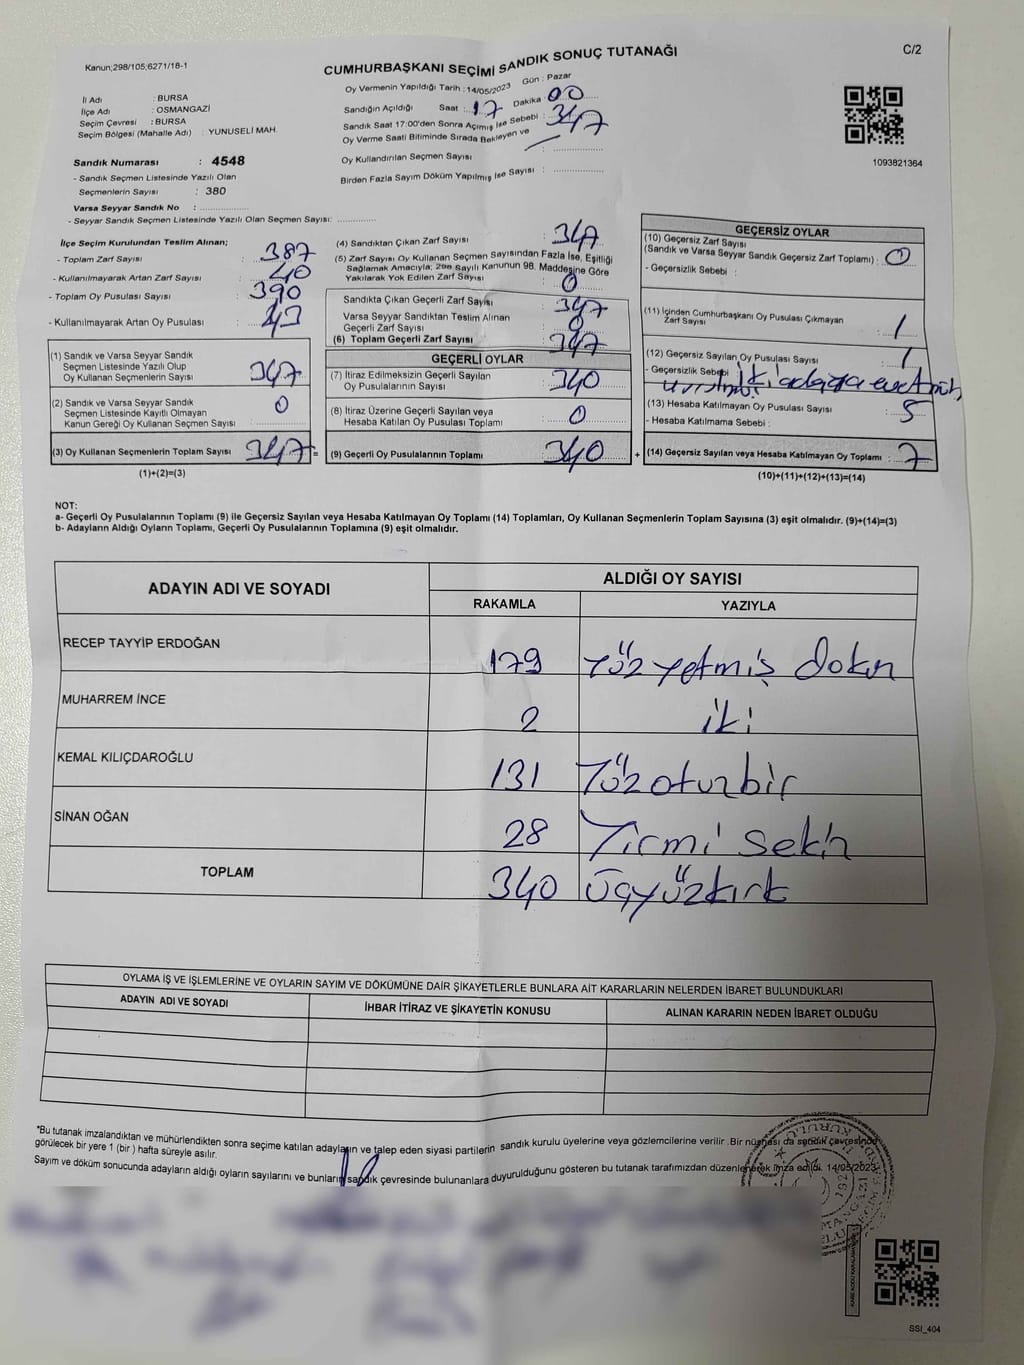 Kanun;298/105;6271/18-1
C/2
CUMHURBAŞKANI SEÇİMİ SANDIK SONUÇ TUTANAĞI
İl Adı : BURSA
İlçe Adı : OSMANGAZİ
Seçim Çevresi : BURSA
Seçim Bölgesi (Mahalle Adı) : YUNUSELİ MAH.
Sandık Numarası : 4548
- Sandık Seçmen Listesinde Yazılı Olan
Seçmenlerin Sayısı : 380
Varsa Seyyar Sandık No :
- Seyyar Sandık Seçmen Listesinde Yazılı Olan Seçmen Sayısı:
Oy Vermenin Yapıldığı Tarih : 14/05/2023 Gün : Pazar
Sandığın Açıldığı Saat : 17 Dakika : 00
Sandık Saat 17:00'den Sonra Açılmış İse Sebebi :
Oy Verme Saati Bitiminde Sırada Bekleyen ve 347
Oy Kullandırılan Seçmen Sayısı :
Birden Fazla Sayım Döküm Yapılmış İse Sayısı :
1093821364
İlçe Seçim Kurulundan Teslim Alınan;
- Toplam Zarf Sayısı : 387
- Kullanılmayarak Artan Zarf Sayısı : 40
- Toplam Oy Pusulası Sayısı : 390
- Kullanılmayarak Artan Oy Pusulası : 43
(1) Sandık ve Varsa Seyyar Sandık
Seçmen Listesinde Yazılı Olup
Oy Kullanan Seçmenlerin Sayısı : 347
(2) Sandık ve Varsa Seyyar Sandık
Seçmen Listesinde Kayıtlı Olmayan
Kanun Gereği Oy Kullanan Seçmen Sayısı : 0
(3) Oy Kullanan Seçmenlerin Toplam Sayısı : 347 =
(1)+(2)=(3)
(4) Sandıktan Çıkan Zarf Sayısı : 347
(5) Zarf Sayısı Oy Kullanan Seçmen Sayısından Fazla İse, Eşitliği
Sağlamak Amacıyla; 298 Sayılı Kanunun 98. Maddesine Göre
Yakılarak Yok Edilen Zarf Sayısı : 0
Sandıkta Çıkan Geçerli Zarf Sayısı : 347
Varsa Seyyar Sandıktan Teslim Alınan
Geçerli Zarf Sayısı : 0
(6) Toplam Geçerli Zarf Sayısı : 347
GEÇERLİ OYLAR
(7) İtiraz Edilmeksizin Geçerli Sayılan
Oy Pusulalarının Sayısı : 340
(8) İtiraz Üzerine Geçerli Sayılan veya
Hesaba Katılan Oy Pusulası Toplamı : 0
(9) Geçerli Oy Pusulalarının Toplamı : 340 +
GEÇERSİZ OYLAR
(10) Geçersiz Zarf Sayısı
(Sandık ve Varsa Seyyar Sandık Geçersiz Zarf Toplamı) : 0
- Geçersizlik Sebebi :
(11) İçinden Cumhurbaşkanı Oy Pusulası Çıkmayan
Zarf Sayısı : 1
(12) Geçersiz Sayılan Oy Pusulası Sayısı : 1
- Geçersizlik Sebebi : iki adaya evet
(13) Hesaba Katılmayan Oy Pusulası Sayısı : 5
- Hesaba Katılmama Sebebi :
(14) Geçersiz Sayılan veya Hesaba Katılmayan Oy Toplamı : 7
(10)+(11)+(12)+(13)=(14)
NOT:
a- Geçerli Oy Pusulalarının Toplamı (9) ile Geçersiz Sayılan veya Hesaba Katılmayan Oy Toplamı (14) Toplamları, Oy Kullanan Seçmenlerin Toplam Sayısına (3) eşit olmalıdır. (9)+(14)=(3)
b- Adayların Aldığı Oyların Toplamı, Geçerli Oy Pusulalarının Toplamına (9) eşit olmalıdır.
ADAYIN ADI VE SOYADI ALDIĞI OY SAYISI
RAKAMLA YAZIYLA
RECEP TAYYİP ERDOĞAN 179 Yüz yetmiş dokuz
MUHARREM İNCE 2 iki
KEMAL KILIÇDAROĞLU 131 Yüz oturbir
SİNAN OĞAN 28 Yirmi sekiz
TOPLAM 340 üçyüzkırk
OYLAMA İŞ VE İŞLEMLERİNE VE OYLARIN SAYIM VE DÖKÜMÜNE DAİR ŞİKAYETLERLE BUNLARA AİT KARARLARIN NELERDEN İBARET BULUNDUKLARI
ADAYIN ADI VE SOYADI İHBAR İTİRAZ VE ŞİKAYETİN KONUSU ALINAN KARARIN NEDEN İBARET OLDUĞU
*Bu tutanak imzalandıktan ve mühürlendikten sonra seçime katılan adayların ve talep eden siyasi partilerin sandık kurulu üyelerine veya gözlemcilerine verilir. Bir nüshası da sandık çevresinde
görülecek bir yere 1 (bir) hafta süreyle asılır.
Sayım ve döküm sonucunda adayların aldığı oyların sayılarını ve bunların sandık çevresinde bulunanlara duyurulduğunu gösteren bu tutanak tarafımızdan düzenlenerek imza edildi. 14/05/2023
SSI_404